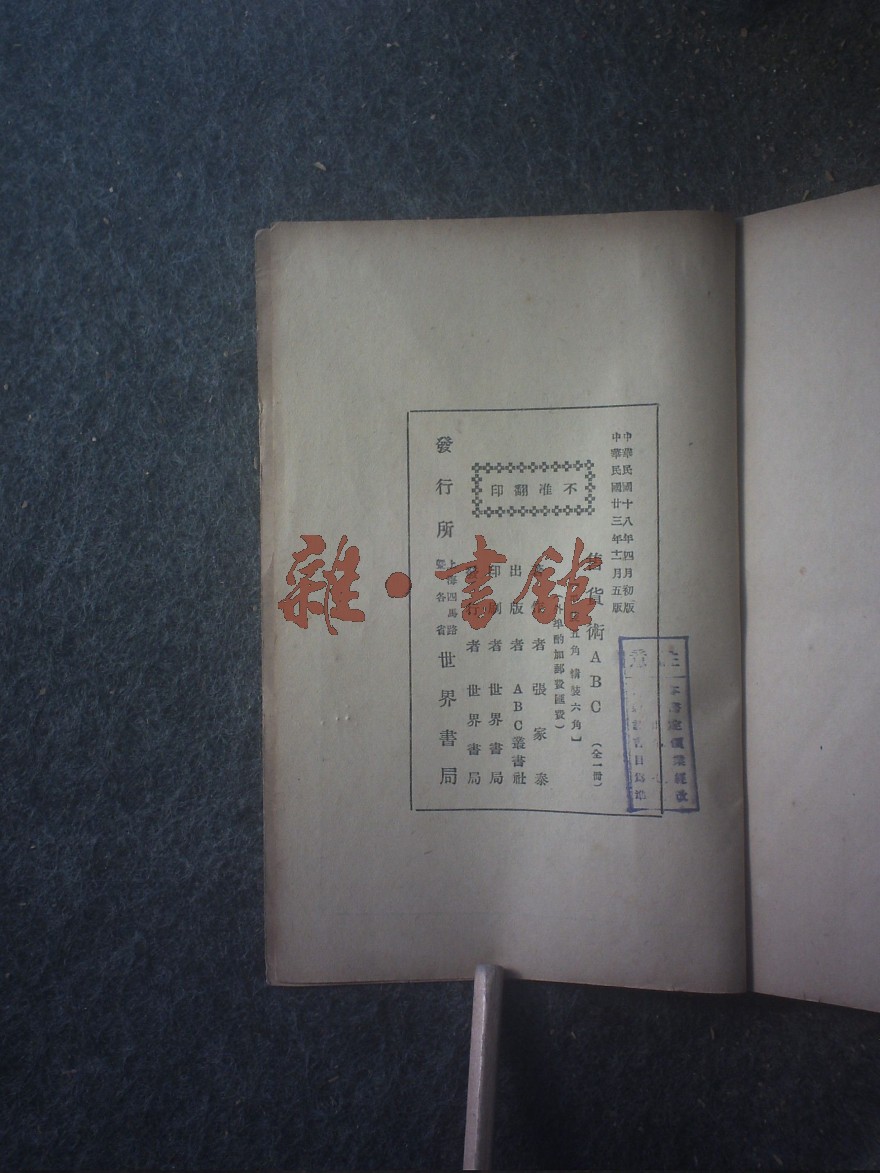 中華民國十八年四月初版
中華民國廿三年十二月五版
售貨術ABC（全一冊）
五角 精裝六角】
外埠酌加郵費匯費）
不准翻印
者 張家泰
出版者 ABC叢書社
印刷者 世界書局
發行者 世界書局
發行所 上海四馬路 暨各省 世界書局
雜·書館